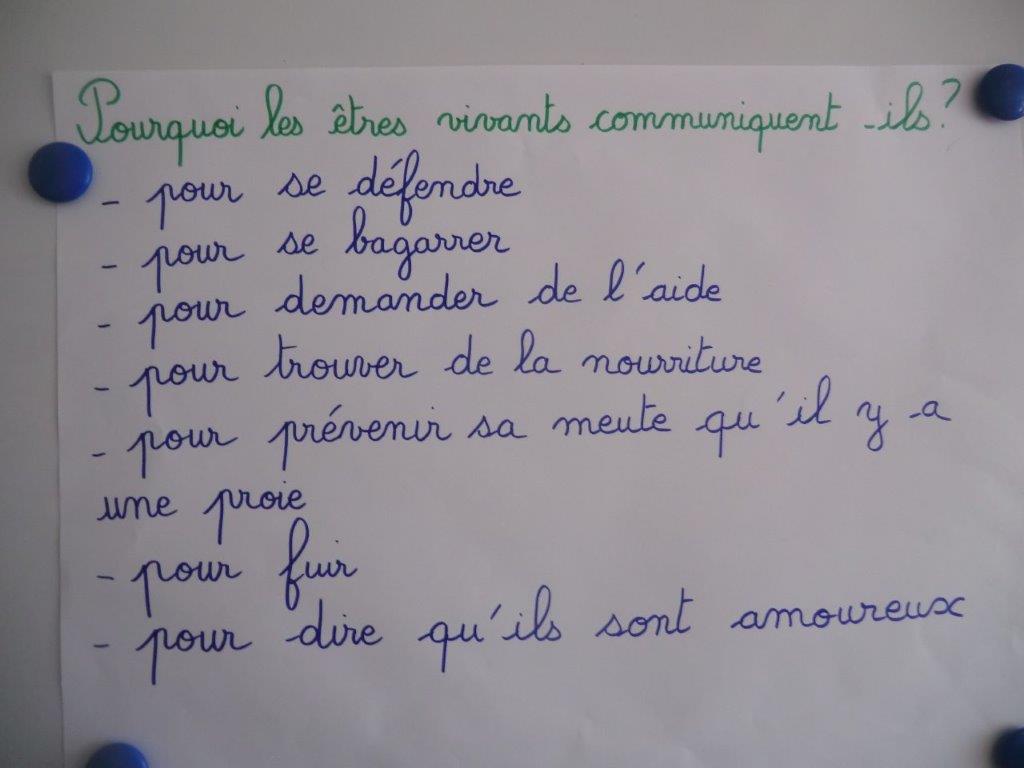 Pourquoi les êtres vivants communiquent-ils?
- pour se défendre
- pour se bagarrer
- pour demander de l'aide
- pour trouver de la nourriture
- pour prévenir sa meute qu'il y a
une proie
- pour fuir
- pour dire qu'ils sont amoureux